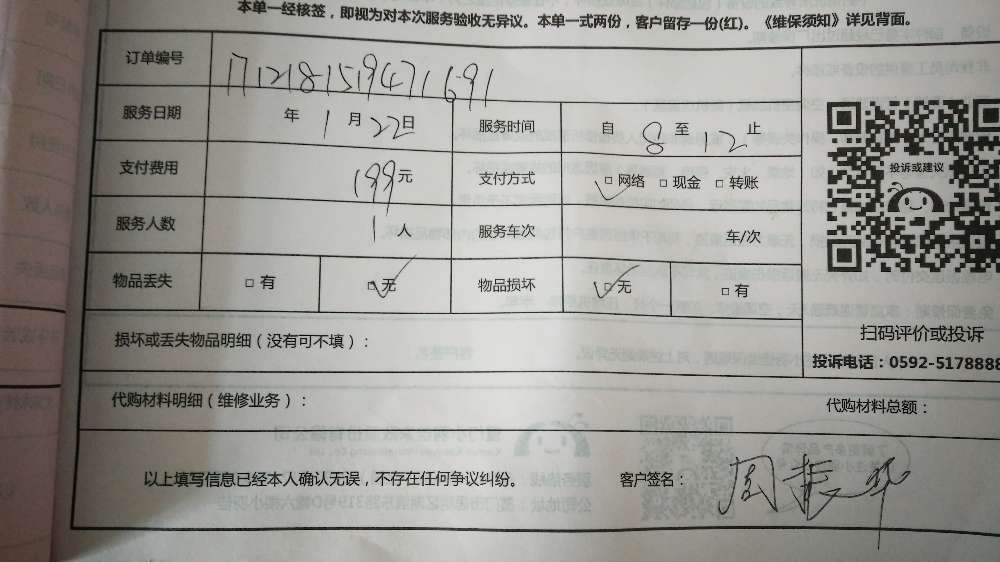 本单一经核签，即视为对本次服务验收无异议。本单一式两份，客户留存一份(红)。《维保须知》详见背面。
订单编号 171218159471691
服务日期 年 1 月 22 日 服务时间 自 8 至 12 止
支付费用 199 元 支付方式 □ 网络 □ 现金 □ 转账
服务人数 1 人 服务车次 车/次
物品丢失 □ 有 □ 无 物品损坏 □ 无 □ 有
投诉或建议
扫码评价或投诉
投诉电话：0592-5178888
损坏或丢失物品明细（没有可不填）：
代购材料明细（维修业务）： 代购材料总额：
以上填写信息已经本人确认无误，不存在任何争议纠纷。 客户签名： 周振华